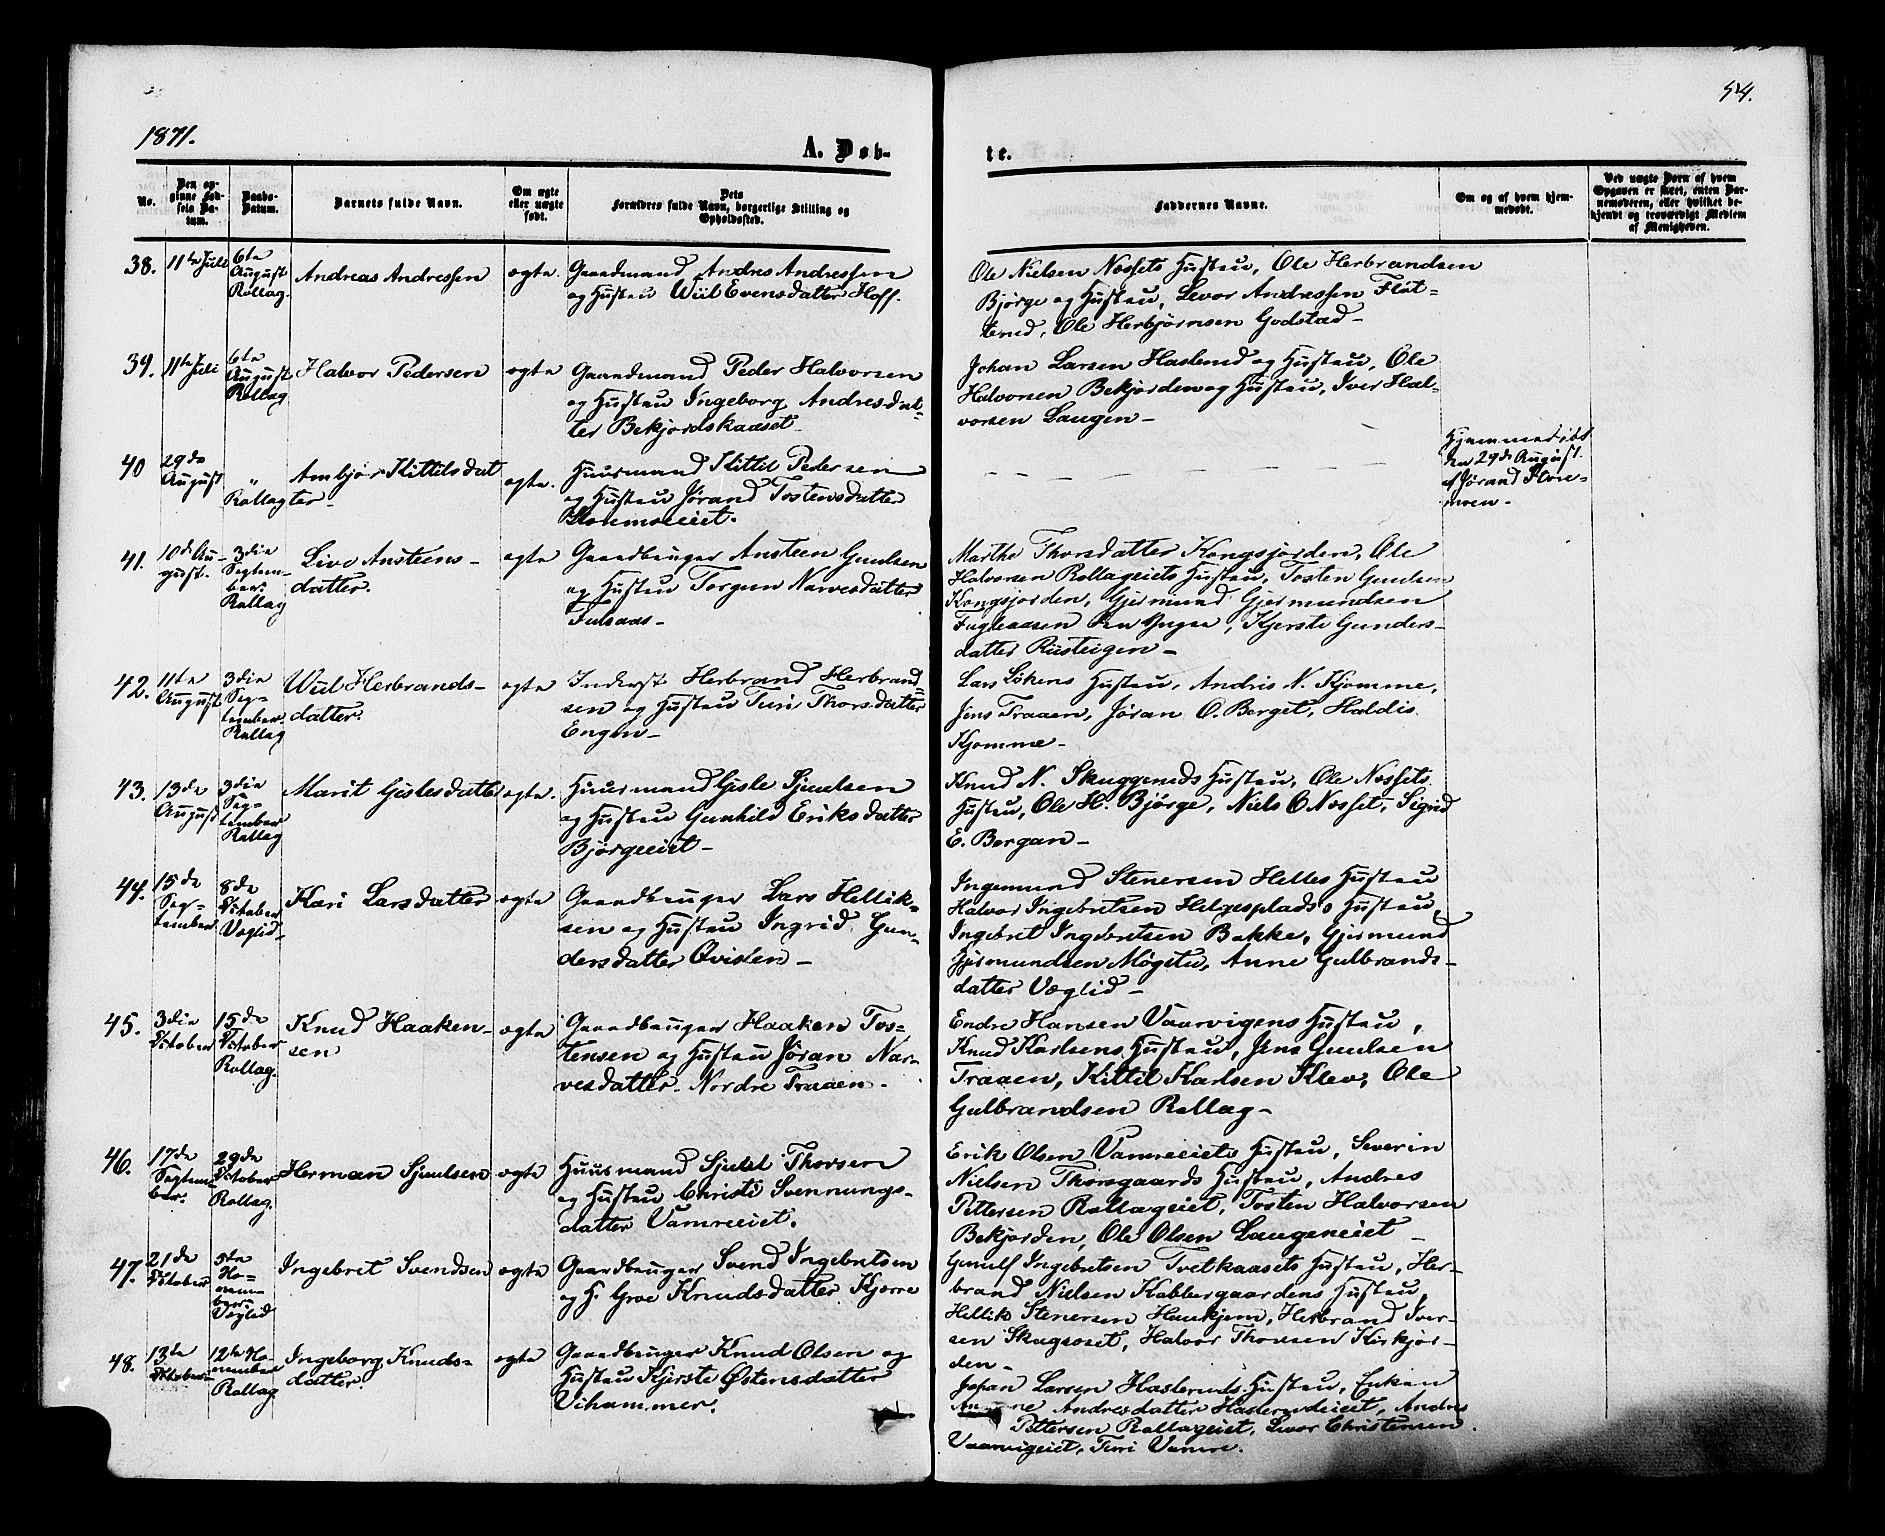 1871.
A. Døb-
te.
54.
No.
Den opginne Fødsels Datum.
Daabs-Datum.
Barnets fulde Navn.
Om ægte eller uægte født.
Dets Forældres fulde Navn, borgerlige Stilling og Opholdssted.
Faddernes Navne.
Om og af hvem hjemmedøbt.
Ved uægte Børn af hvem Opgaven er skeet, enten Barnemoderen, eller hvilket bekjendt og troværdigt Medlem af Menigheden.
38. 11te Juli 6te August Rollag. Andreas Andressen ægte. Gaardmand Andres Andressen
og Hustau Wiil Evensdatter Hoff.
Ole Nielsen Næssets Hustau, Ole Herbrandsen
Bjørge og Hustau, Levor Andressen Flat-
terud, Ole Herbjørnsen Godstad-
39. 11te Juli 6te August Rollag Halvor Pedersen ægte Gaardmand Peder Halvorsen
og Hustau Ingeborg Andresdat-
ter Bekjordskaaset-
Johan Larsen Haslerud og Hustau, Ole
Halvorsen Bekjorden og Hustau, Iver Hal-
vorsen Laugen-
40 29de August " Rollag Ambjør Kittilsdat
ter- ægte. Huusmand Kittil Pedersen
og Hustau Jørand Tostensdatter
Stormoeiet.
Hjemmedøbt
den 29de August
af Jørand Stor-
moen-
41. 10de August. 3die September. Rollag Live Ansteens-
datter. ægte Gaardbruger Ansteen Gunlsen
og Hustau Torgun Narvesdatter
Fulsaas-
Marthe Thorsdatter Kongsjorden, Ole
Halvorsen Rollageiets Hustau, Tosten Gunlsen
Kongsjorden, Gjermund Gjermundsen
Fugleaasen den Yngre, Kjersti Gunders-
datter Riisteigen-
42. 11te August 3die September. Rollag Wiil Herbrands-
datter. ægte Inderst Herbrand Herbrand-
sen og Hustau Turi Thorsdatter
Engen-
Lars Løkens Hustau, Andris N. Kjomme,
Jens Traaen, Jøran O. Berget, Haldis
Kjomme-
43. 13de August 3die September Rollag Marit Gislesdatter ægte. Huusmand Gisle Sjulsen
og Hustau Gunhild Eriksdatter
Bjørgeeiet-
Knud N. Skuggeruds Hustau, Ole Næssets
Hustau, Ole H. Bjørge, Niels O Næsset, Sigrid
E. Bergan-
44. 15de September 8de Oktober Væglid- Kari Larsdatter ægte Gaardbruger Lars Hellik-
sen og Hustau Ingrid Gun-
dersdatter Qvislen-
Ingemund Stenersen Helles Hustau
Halvor Ingebretsen Helgesplads's Hustau,
Ingebret Ingebretsen Bakke, Gjermund
Gjermundsen Møgstu, Anne Gulbrands-
datter Væglid-
45. 3die Oktober 15de Oktober Rollag. Knud Haaken-
sen ægte Gaardbruger Haaken Tos-
tensen og Hustau Jøran Nar-
vesdatter Nordre Traaen-
Endre Hansen Vaarvigens Hustau,
Knud Karlsens Hustau, Jens Gunlsen
Traaen, Kittil Karlsen Klev, Ole
Gulbrandsen Rollag-
46. 17de September. 29de Oktober Rollag. Herman Sjulsen ægte Huusmand Sjul Thorsen
og Hustau Christi Svennungs-
datter Vamreeiet.
Erik Olsen Vamreeiets Hustau, Severin
Nielsen Thorsgaards Hustau, Andres
Pettersen Rollageiet, Tosten Halvorsen
Bekjorden, Ole Olsen Laugeneiet
47. 21de Oktober 5te November Væglid Ingebret Svendsen ægte Gaardbruger Svend Ingebretsen
og H. Groe Knudsdatter Kjerre
Gunulf Ingebretsen Tvetkaasets Hustau, Her-
brand Nielsen Kobbergaardens Hustau
Hellik Stenersen Haukjem, Herbrand Iver-
sen Skagsoset, Halvor Thorsen Kirkjor-
den-
48. 13de Oktober 12te November Rollag Ingeborg Knuds-
datter. ægte Gaardbruger Knud Olsen og
Hustau Kjersti Østensdatter
Vihammer.
Johan Larsen Hasleruds Hustau, Enken
Andresdatter Haslerudeiet, Andres
Pettersen Rollageiet, Levor Christensen
Vaarvigeiet, Turi Vamre.